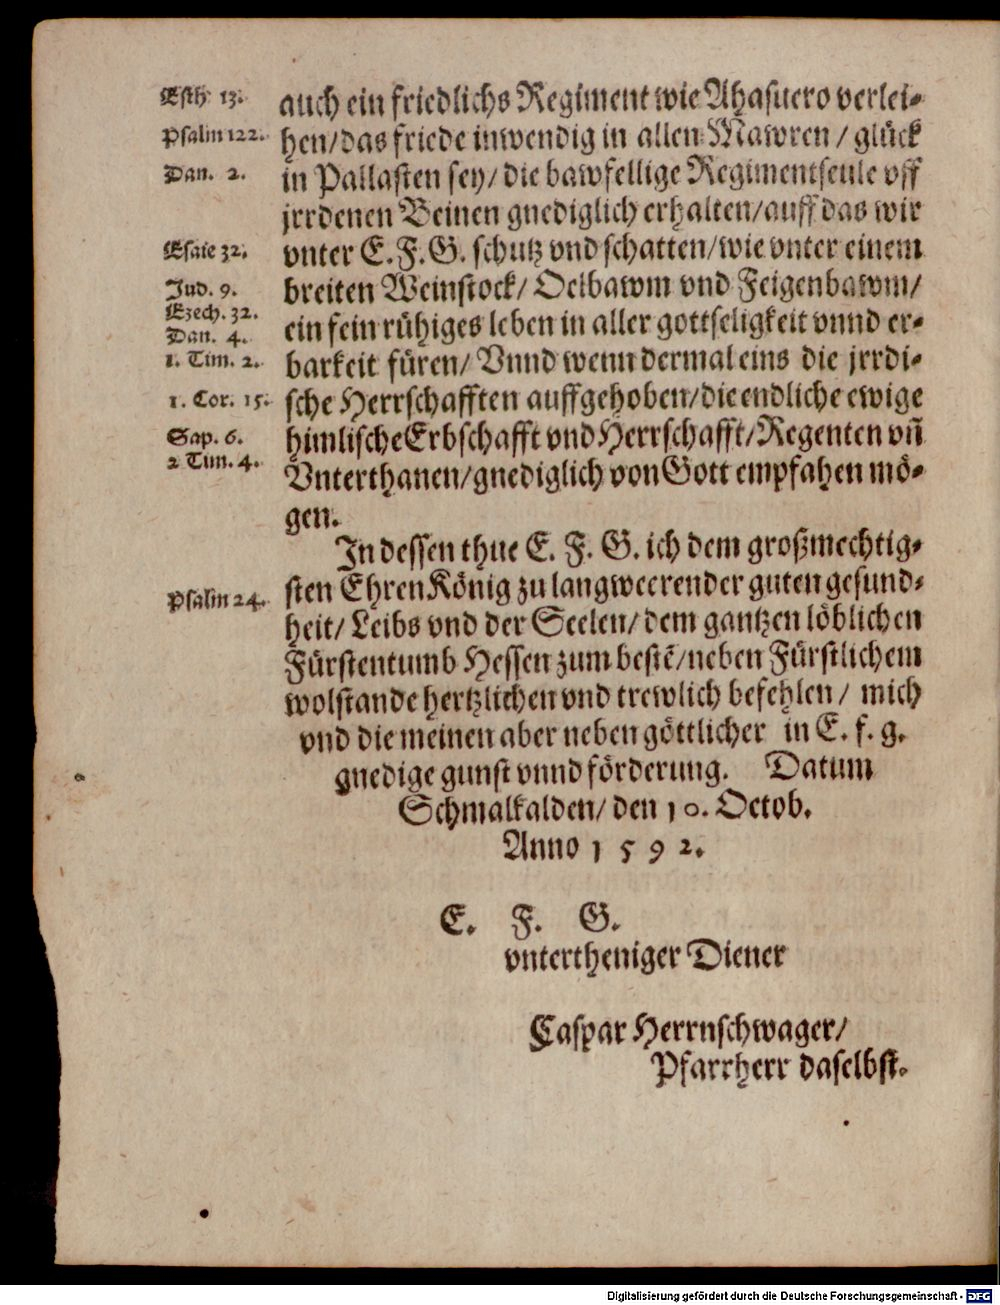 Esth 13. auch ein friedlichs Regiment wie Ahasuero verlei-
Psalm 122. hen/das friede inwendig in allen Mawren / glück
Dan. 2. in Pallasten sey/ die bawfellige Regimentseule vff
jrrdenen Beinen gnediglich erhalten/auff das wir
Esaie 32. vnter E. F. G. schutz vnd schatten/wie vnter einem
Jud. 9. breiten Weinstock/ Oelbawm vnd Feigenbawm/
Ezech. 32.
Dan. 4. ein fein rühiges leben in aller gottseligkeit vnnd er-
1. Tim. 2. barkeit füren/ Vnnd wenn dermal eins die jrrdi-
1. Cor. 15. sche Herrschafften auffgehoben/die endliche ewige
Sap. 6. himlische Erbschafft vnd Herrschafft/Regenten vñ
2 Tim. 4. Vnterthanen/gnediglich von Gott empfahen mö-
gen.
In dessen thue E. F. G. ich dem großmechtig-
Psalm 24. sten Ehren König zu langweerender guten gesund-
heit/ Leibs vnd der Seelen/ dem gantzen löblichen
Fürstentumb Hessen zum bestē/neben Fürstlichem
wolstande hertzlichen vnd trewlich befehlen/ mich
vnd die meinen aber neben göttlicher in E. f. g.
gnedige gunst vnnd förderung. Datum
Schmalkalden/ den 10. Octob.
Anno 1592.
E. F. G.
vntertheniger Diener
Caspar Herrnschwager/
Pfarrherr daselbst.
Digitalisierung gefördert durch die Deutsche Forschungsgemeinschaft - DFG